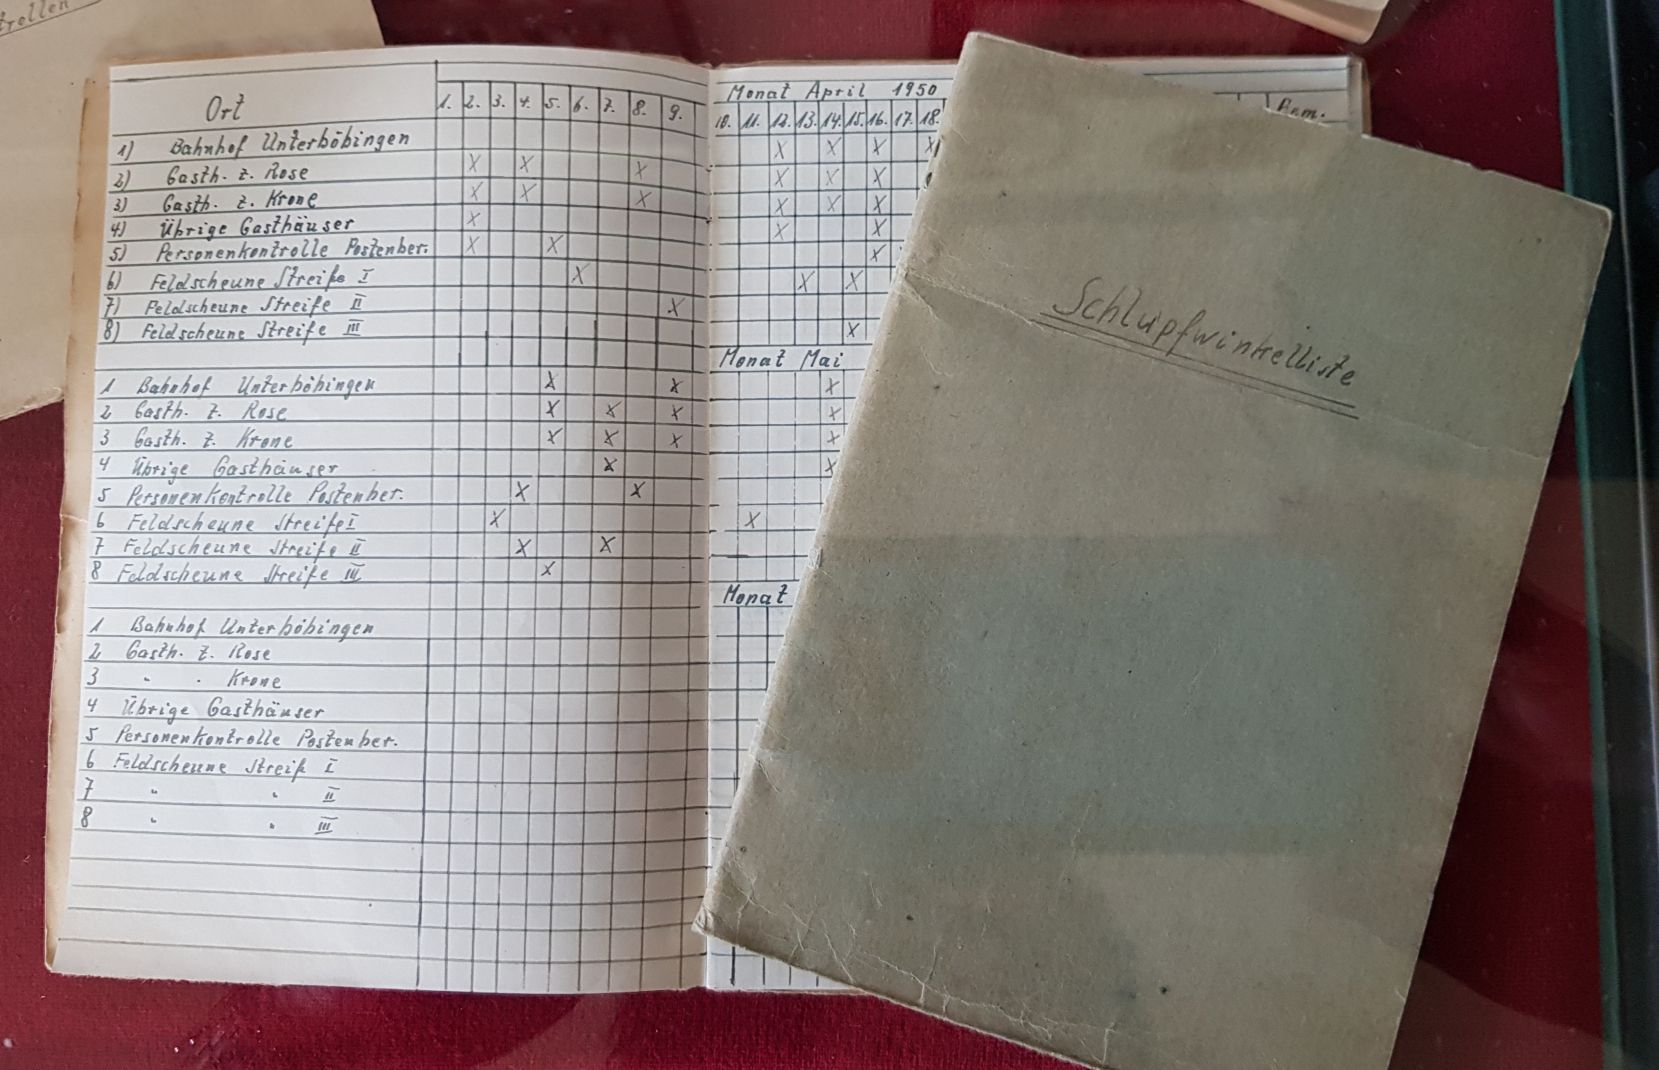 trollen
Ort 1. 2. 3. 4. 5. 6. 7. 8. 9.
1) Bahnhof Unterböbingen
2) Gasth. z. Rose X X X
3) Gasth. z. Krone X X X
4) Übrige Gasthäuser X
5) Personenkontrolle Postenber. X X
6) Feldscheune Streife I X
7) Feldscheune Streife II X
8) Feldscheune Streife III
1 Bahnhof Unterböbingen X X
2 Gasth. z. Rose X X X
3 Gasth. z. Krone X X X
4 Übrige Gasthäuser X
5 Personenkontrolle Postenber. X X
6 Feldscheune Streife I X
7 Feldscheune Streife II X X
8 Feldscheune Streife III X
1 Bahnhof Unterböbingen
2 Gasth. z. Rose
3 " " Krone
4 Übrige Gasthäuser
5 Personenkontrolle Postenber.
6 Feldscheune Streife I
7 " " II
8 " " III
Monat April 1950
10. 11. 12. 13. 14. 15. 16. 17. 18. Bem.
X X X X
X X X
X X X
X X
X
X X
X
Monat Mai
X
X
X
X
X
Monat
Schlupfwinkelliste